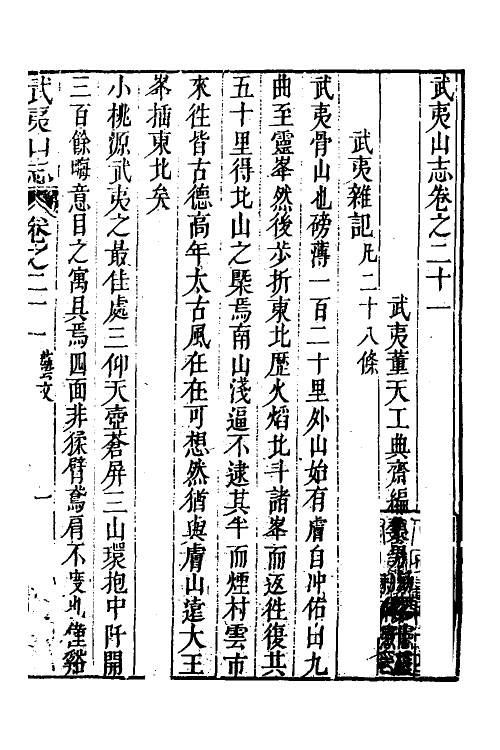 武夷山志卷之二十一
武夷董天工典齋編
武夷雜記凡二十八條
武夷骨山也磅薄一百二十里外山始有膚自冲佑由九
曲至靈峯然後步折東北歷火焰北斗諸峯而返徃復其
五十里得北山之槩焉南山淺逼不逮其半而煙村雲市
來徃皆古德高年太古風在在可想然猶與膚山遠大王
峯插東北矣
小桃源武夷之最佳處三仰天壺蒼屏三山環抱中阡開
三百餘晦意目之寓具焉四面非猱臂鳶肩不度也僅谿
武夷山志 卷之二十一 藝文 一